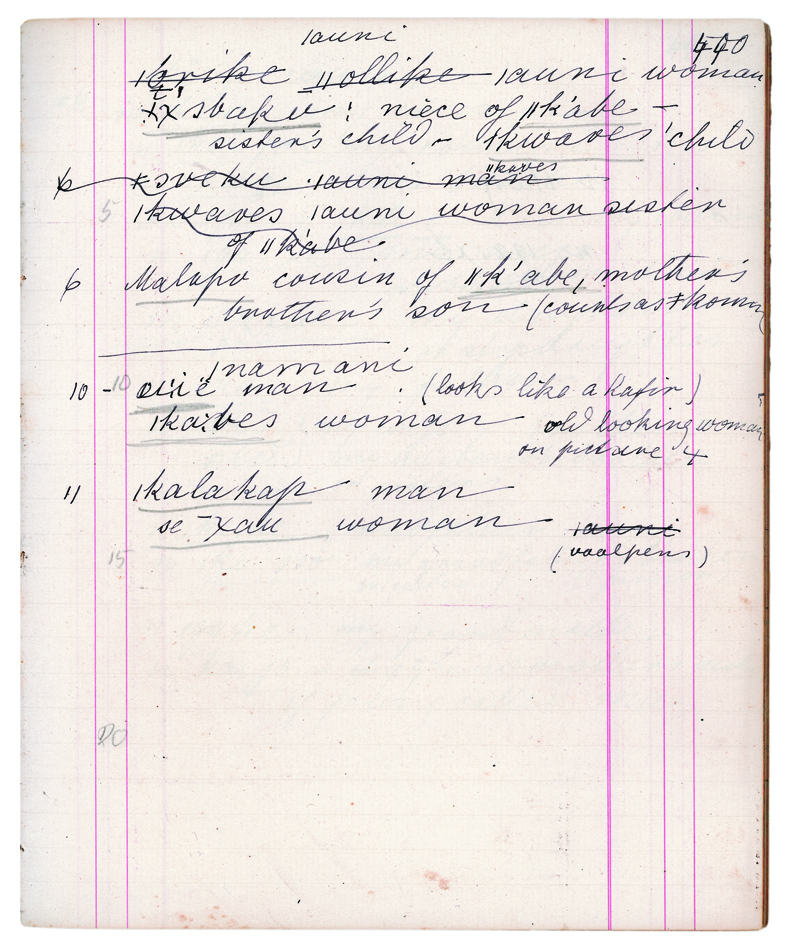 ǀauni
440
ǀkrike ǁollike ǀauni woman
sbaku : niece of ǁk'abe –
sister's child – ǀkwaves' child
ǁkaves
ǀauni man
5 ǀkwaves ǀauni woman sister
of ǁk'abe.
6 Malapo cousin of ǁk'abe, mother's
brother's son (counts as
ǀnamani
10 – 10 man . (looks like a Kafir)
woman old looking woman
on picture 4
11 ǀkalakap man
se – xau woman ǀauni
15 (vaalpens)
20